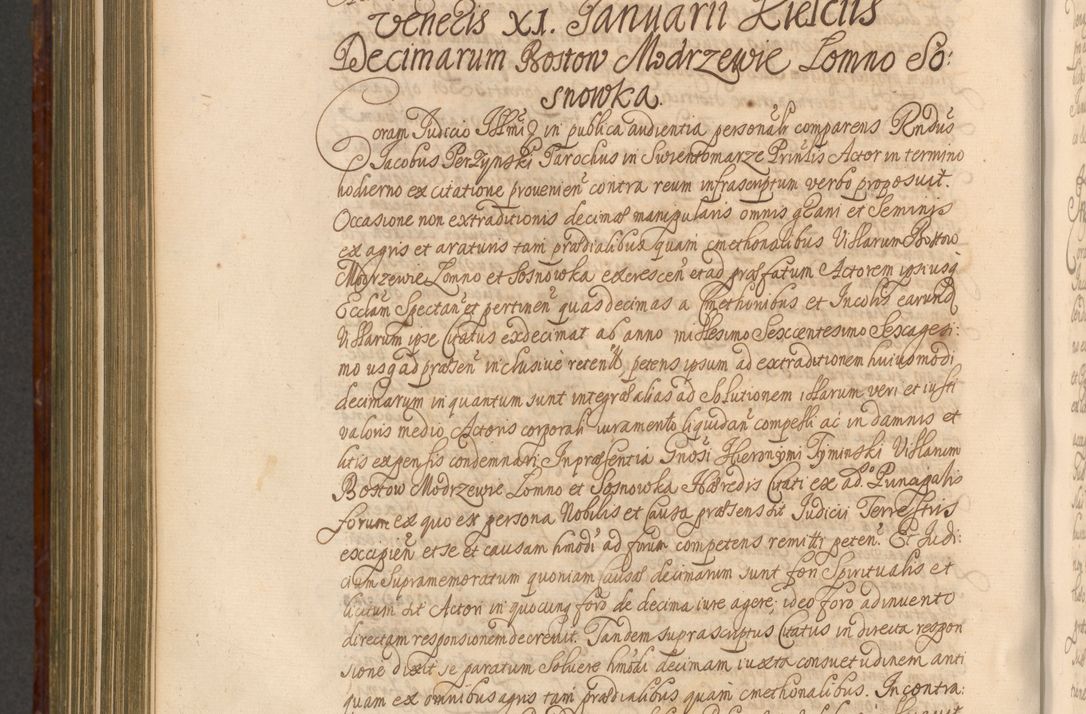 Veneris XI. Januarii Kielciis
Decimarum Rostow Modrzewie Lomno So:
snowka.
Coram Judicio Illmi D in publica audientia personalr comparens Rndus
D Jacobus Perzynski Parochus in Swientomarze Prinlis Actor in termino
hodierno ex citatione provenien contra reum infrascriptum verbo proposuit.
Occasione non extraditionis decimae manipularis omnis grani et Seminis
ex agris et araturis tam praedialibus quam cmethonalibus Villarum Rostow
Modrzewie Lomno et Sosnowka excrescen et ad praefatum Actorem ipsiusq
Ecclam Spectan et pertinen quas decimas a Cmethonibus et Incolis earund
Villarum ipse Citatus exdecimat ab anno millesimo Sexcentesimo Sexagesi:
mo usq ad praesen inclusive petens ipsum ad extraditionem huiusmodi
decimarum in quantum sunt integrae alias ad Solutionem illarum veri et iusti
valoris medio Actoris corporali iuramento liquidan compelli ac in damnis et
litis expensis condemnari. In praesentia Gnosi Hieronymi Tyminski Villarum
Rostow Modrzewie Lomno et Sosnowka Haeredis Citati ex ad.
forum ex quo ex persona Nobilis et Causa praesens sit Judicii Terrestris
excipien et se et causam hmodi ad forum competens remitti peten. Et Judi:
cium Supramemoratum quoniam causae decimarum sunt fori Spiritualis et
licitum sit Actori in quocunq foro de decima iure agere: ideo foro adinvento
directam responsionem decrevit. Tandem suprascriptus Citatus in directa respon
sione dixit se paratum Solvere hmodi decimam iuxta consuetudinem anti
quam ex omnibus agris tam praedialibus quam cmethonalibus. In contra: